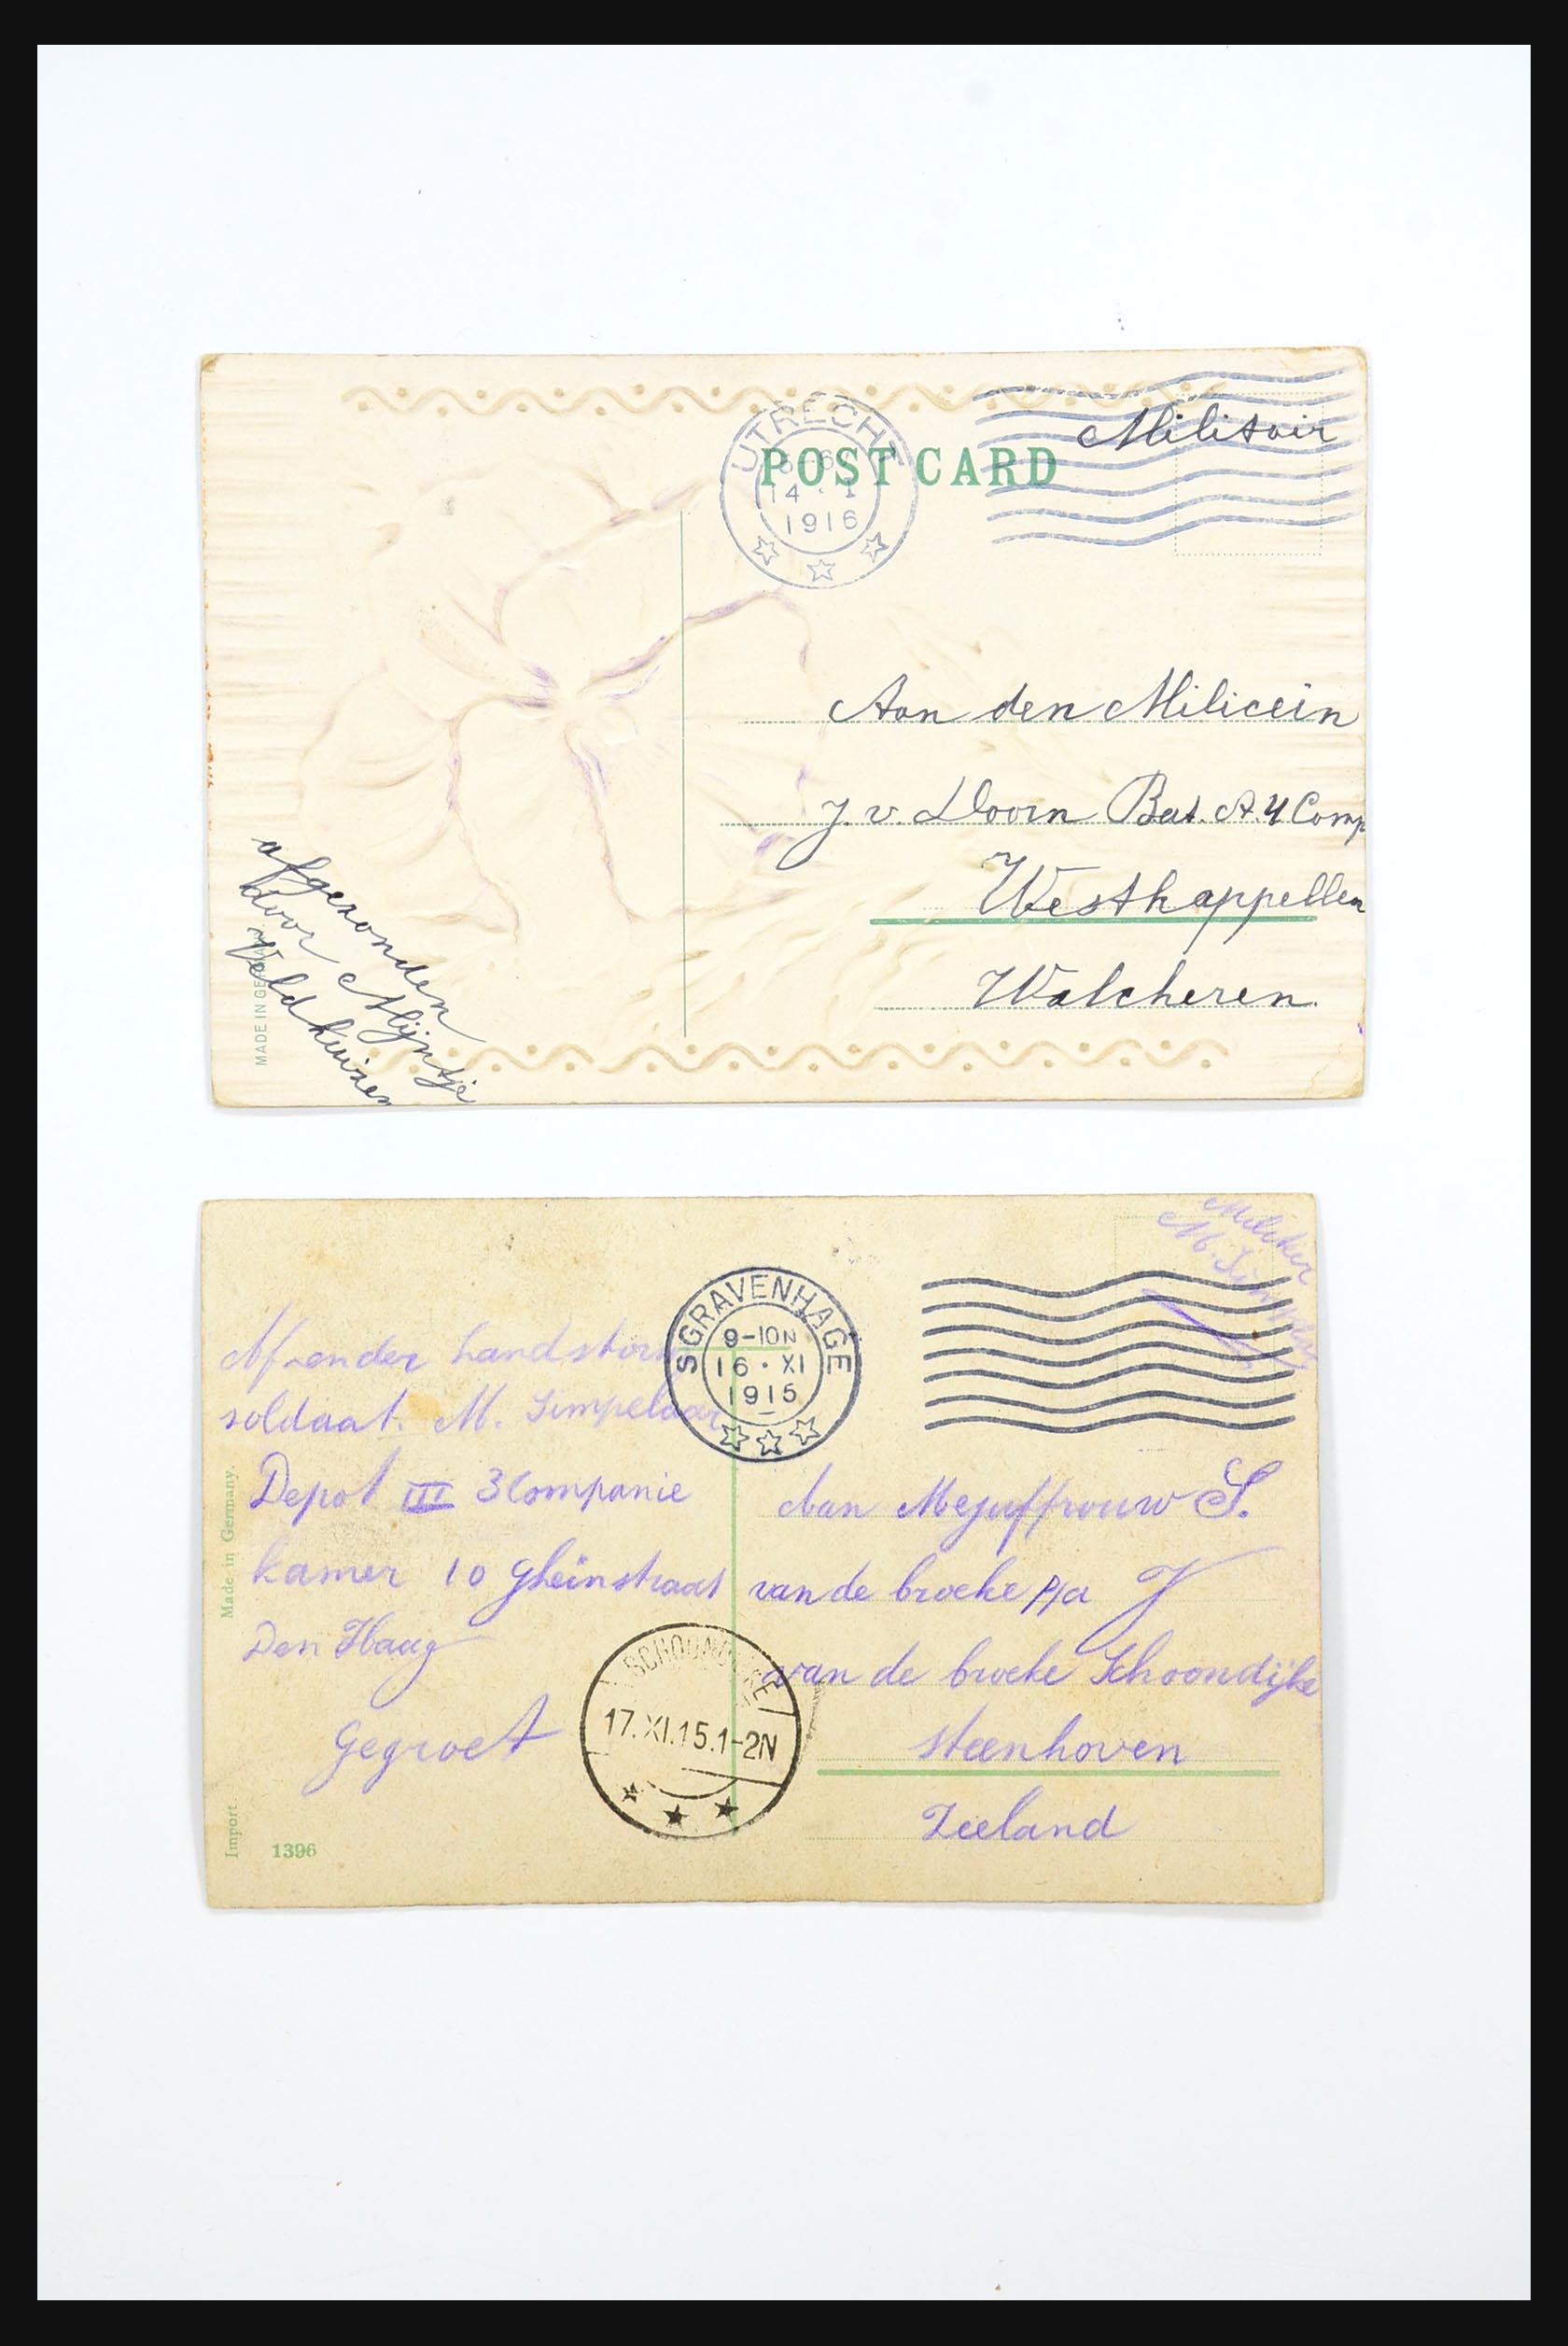 UTRECHT
14 · I
1916
POST CARD
Militair
Aan den Milicein
J. v. Doorn Bat. A. 4 Comp
Westkappellen
Walcheren.
afgezonden
door Mijntje
Veldhuizen
MADE IN GERMANY
Militer
M.
S GRAVENHAGE
9-10N
16 · XI
1915
Afzender landstorm
soldaat. M. Simpelaar
Depot III 3 Companie
kamer 10
Den Haag
Gegroet
Aan Mejuffrouw S.
van de broeke p/a J
van de broeke Schoondijke
steenhoven
Zeeland
SCHOONDIJKE
17.XI.15.1-2N
Made in Germany.
Import
1396